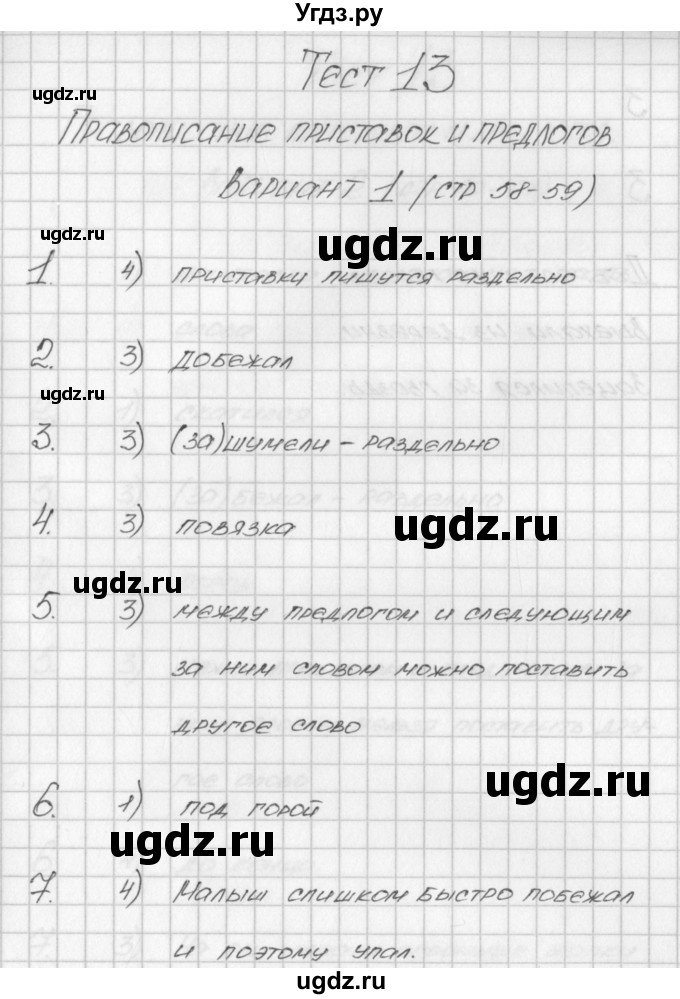 Угдз.ру
Тест 13
ugdz.ru
Правописание приставок и предлогов
Вариант 1 (стр 58-59)
ugdz.ru
1. 4) приставки пишутся раздельно
2. 3) добежал
ugdz.ru
3. 3) (за)шумели - раздельно
4. 3) повязка
ugdz.ru
ugdz.ru
5. 3) между предлогом и следующим
за ним словом можно поставить
другое слово
ugdz.ru
6. 1) под горой
ugdz.ru
7. 4) Малыш слишком быстро побежал
и поэтому упал.
ugdz.ru
Угдз.ру